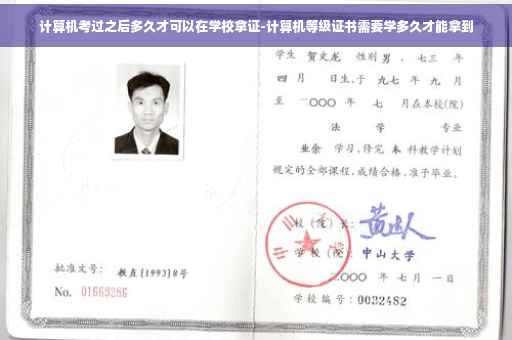 计算机考过之后多久才可以在学校拿证-计算机等级证书需要学多久才能拿到
学生 贺文龙 性别 男 、七三 年
四 月 日生,于 九七 年 九 月
至 二〇〇〇 年 七 月在本校(院)
法 学 专业
业余 学习,修完 本 科教学计划
规定的全部课程,成绩合格,准予毕业。
校 (院) 长:
学 校 (院): 中山大学
二〇〇〇 年 七 月 一 日
学校编号: 0032482
批准文号: 教直[1993]8号
No. 01669286